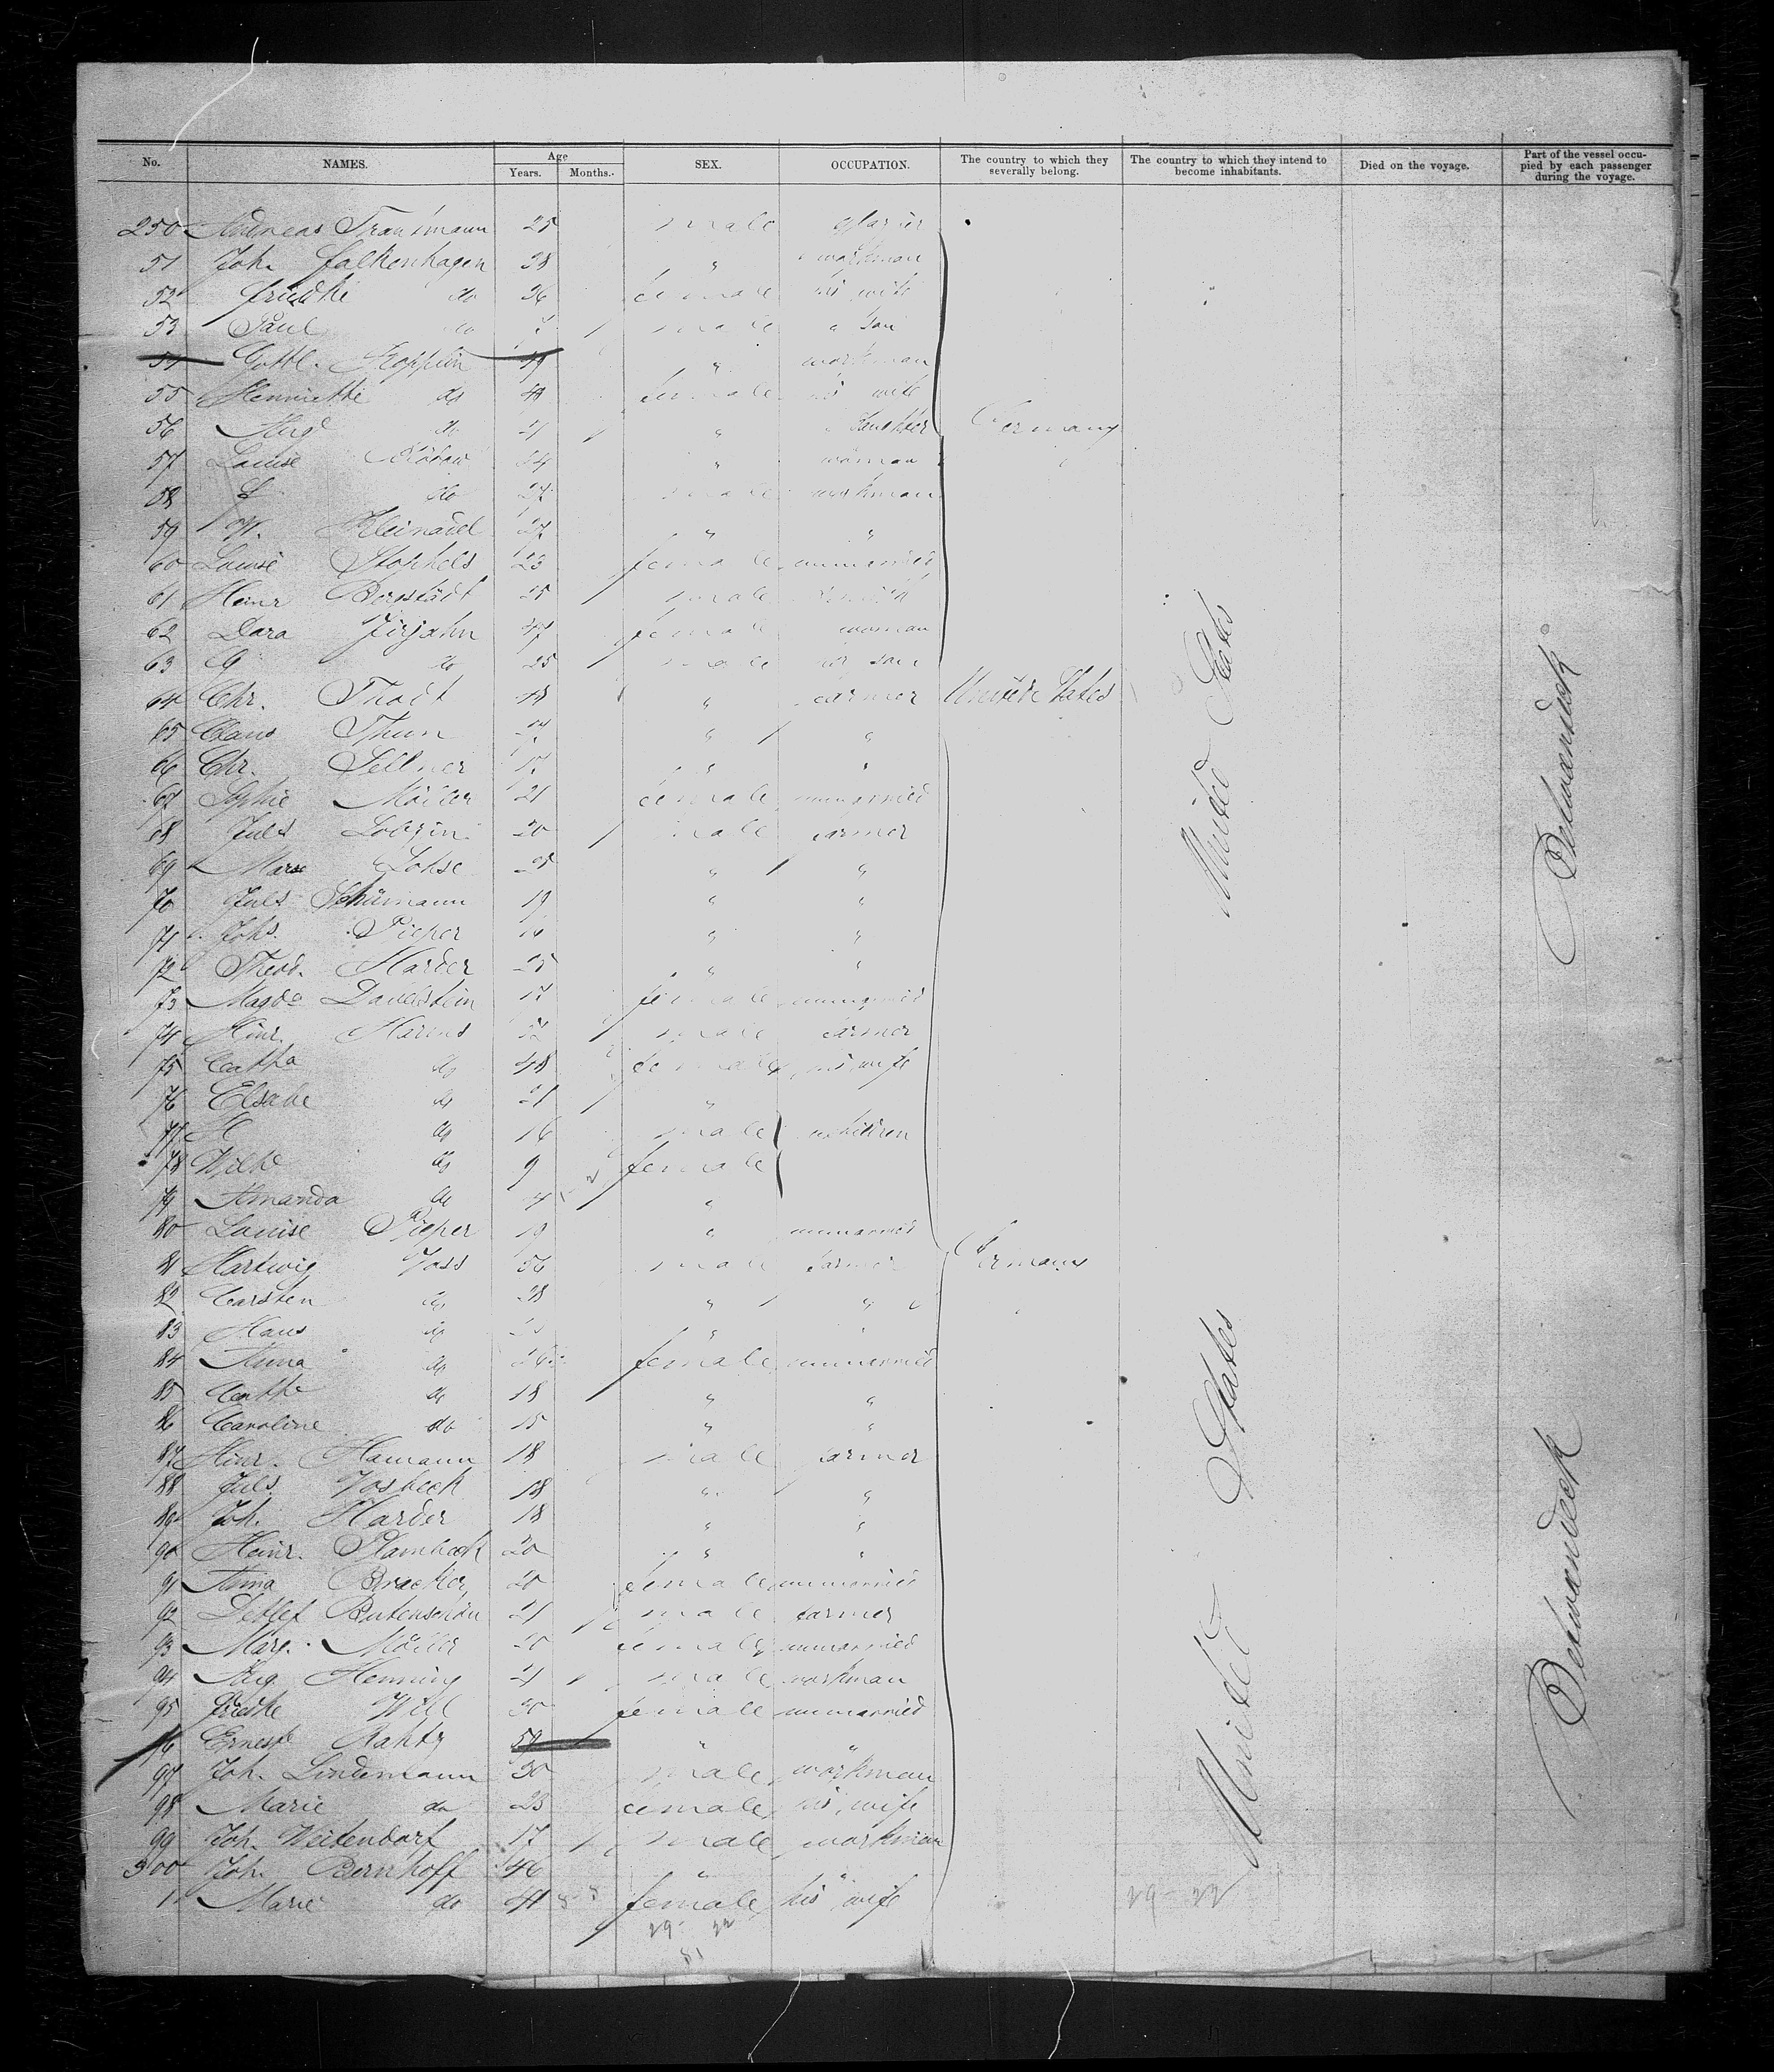 No. NAMES. Age Years. Months. SEX. OCCUPATION. The country to which they severally belong. The country to which they intend to become inhabitants. Died on the voyage. Part of the vessel occupied by each passenger during the voyage.
250 Andreas Trautmann 25 male glazier
51 Joh. Falkenhagen 38 " workman
52 Friedke do 36 female his wife
53 Paul do male " son
54 Gottl. Kopplin 49 " workman
55 Henriette do female his wife
56 Aug do 21 " daughter Germany
57 Louise woman
58 do male workman
59 W. 27 " "
60 Louise Stophels 23 female unmarried
61 Heinr Bergstädt 25 male
62 Dora Jirjahn 47 female woman
63 G do 25 male her son
64 Chr. Thodt 48 " farmer United States
65 Claus Thun " "
66 Chr. Sellmer 17 " "
67 Sophie Möller 21 female unmarried
68 Juls 20 male farmer
69 Marx Lohse 25 " "
70 Juls Schümann 19 " "
71 Johs. Pieper 16 " "
72 Theod. Harder 25 " "
73 Magda 17 female unmarried
74 Hinr. Harms 52 male farmer
75 Catha do 48 female his wife
76 Elsabe do 21 "
77 H do 16 male children
78 Wilhe do 9 female
79 Amanda do "
80 Louise Pieper 19 " unmarried
81 Hartwig Voss 56 male farmer Germany
82 Carsten do 28 " "
83 Hans do " "
84 Anna do female unmarried
85 Cathe do 18 " "
86 Caroline do 15 " "
87 Hinr. Hamann 18 male farmer
88 Juls. Vosbeck 18 " "
89 Joh. Harder 18 " "
90 Heinr. Stambeck 20 " "
91 Anna Bracker 20 female unmarried
92 Detlef Butenschön 21 male farmer
93 Marg. Möller 20 female unmarried
94 Aug Henning 21 male workman
95 Friedke Will 30 female unmarried
96 Erneste Rahtz 59 " "
97 Joh. Lindemann 30 male workman
98 Marie do 23 female his wife
99 Joh. Weitendorf 17 male workman
300 Joh. Bernhoff 46 " "
1 Marie do 41 female his wife
29 22
81
29-22
United States
United States
Betweendeck
Betweendeck